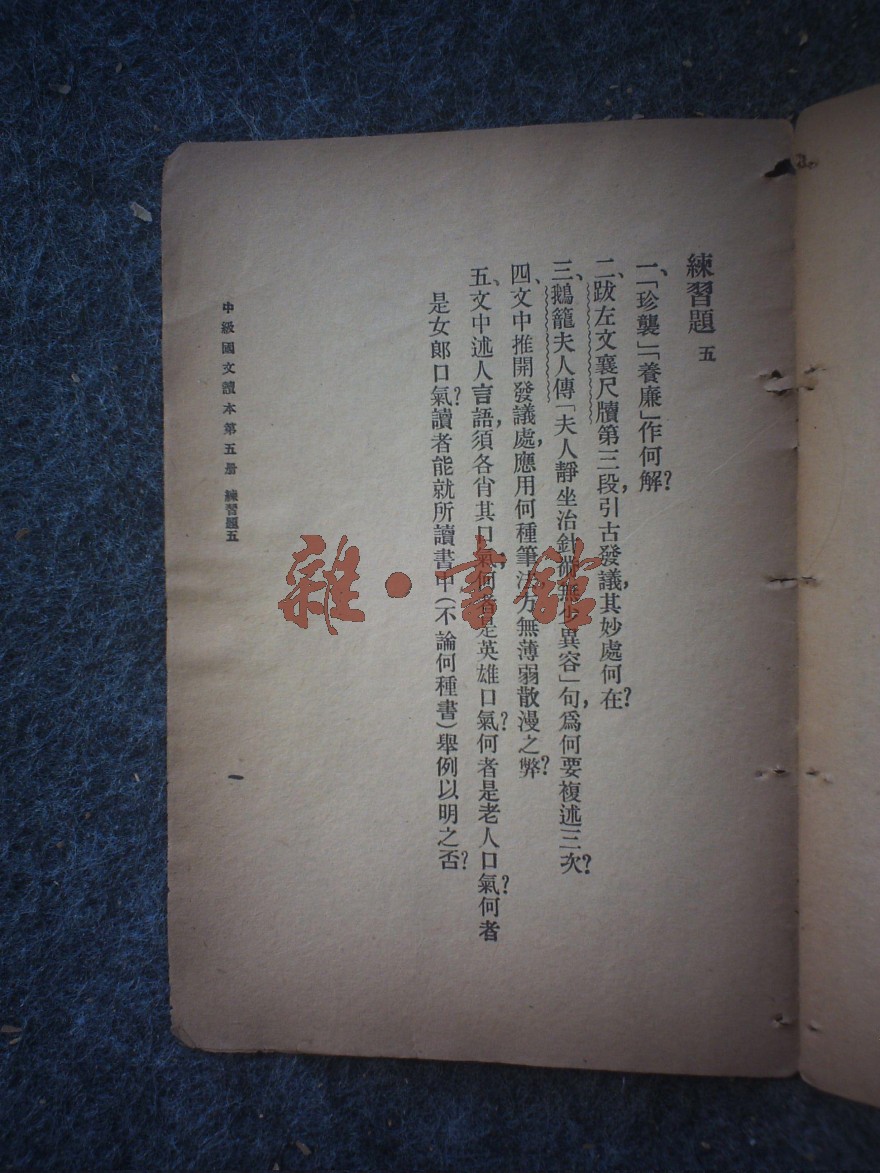 練習題 五
一、「珍襲」「養廉」作何解？
二、跋左文襄尺牘第三段，引古發議，其妙處何在？
三、鵝籠夫人傳「夫人靜坐治針黹無少異容」句，爲何要複述三次？
四、文中推開發議處，應用何種筆法，方無薄弱散漫之弊？
五、文中述人言語，須各肖其口氣，何者是英雄口氣？何者是老人口氣？何者
是女郎口氣？讀者能就所讀書中（不論何種書）舉例以明之否？
中級國文讀本第五册 練習題五
一
雜·書館